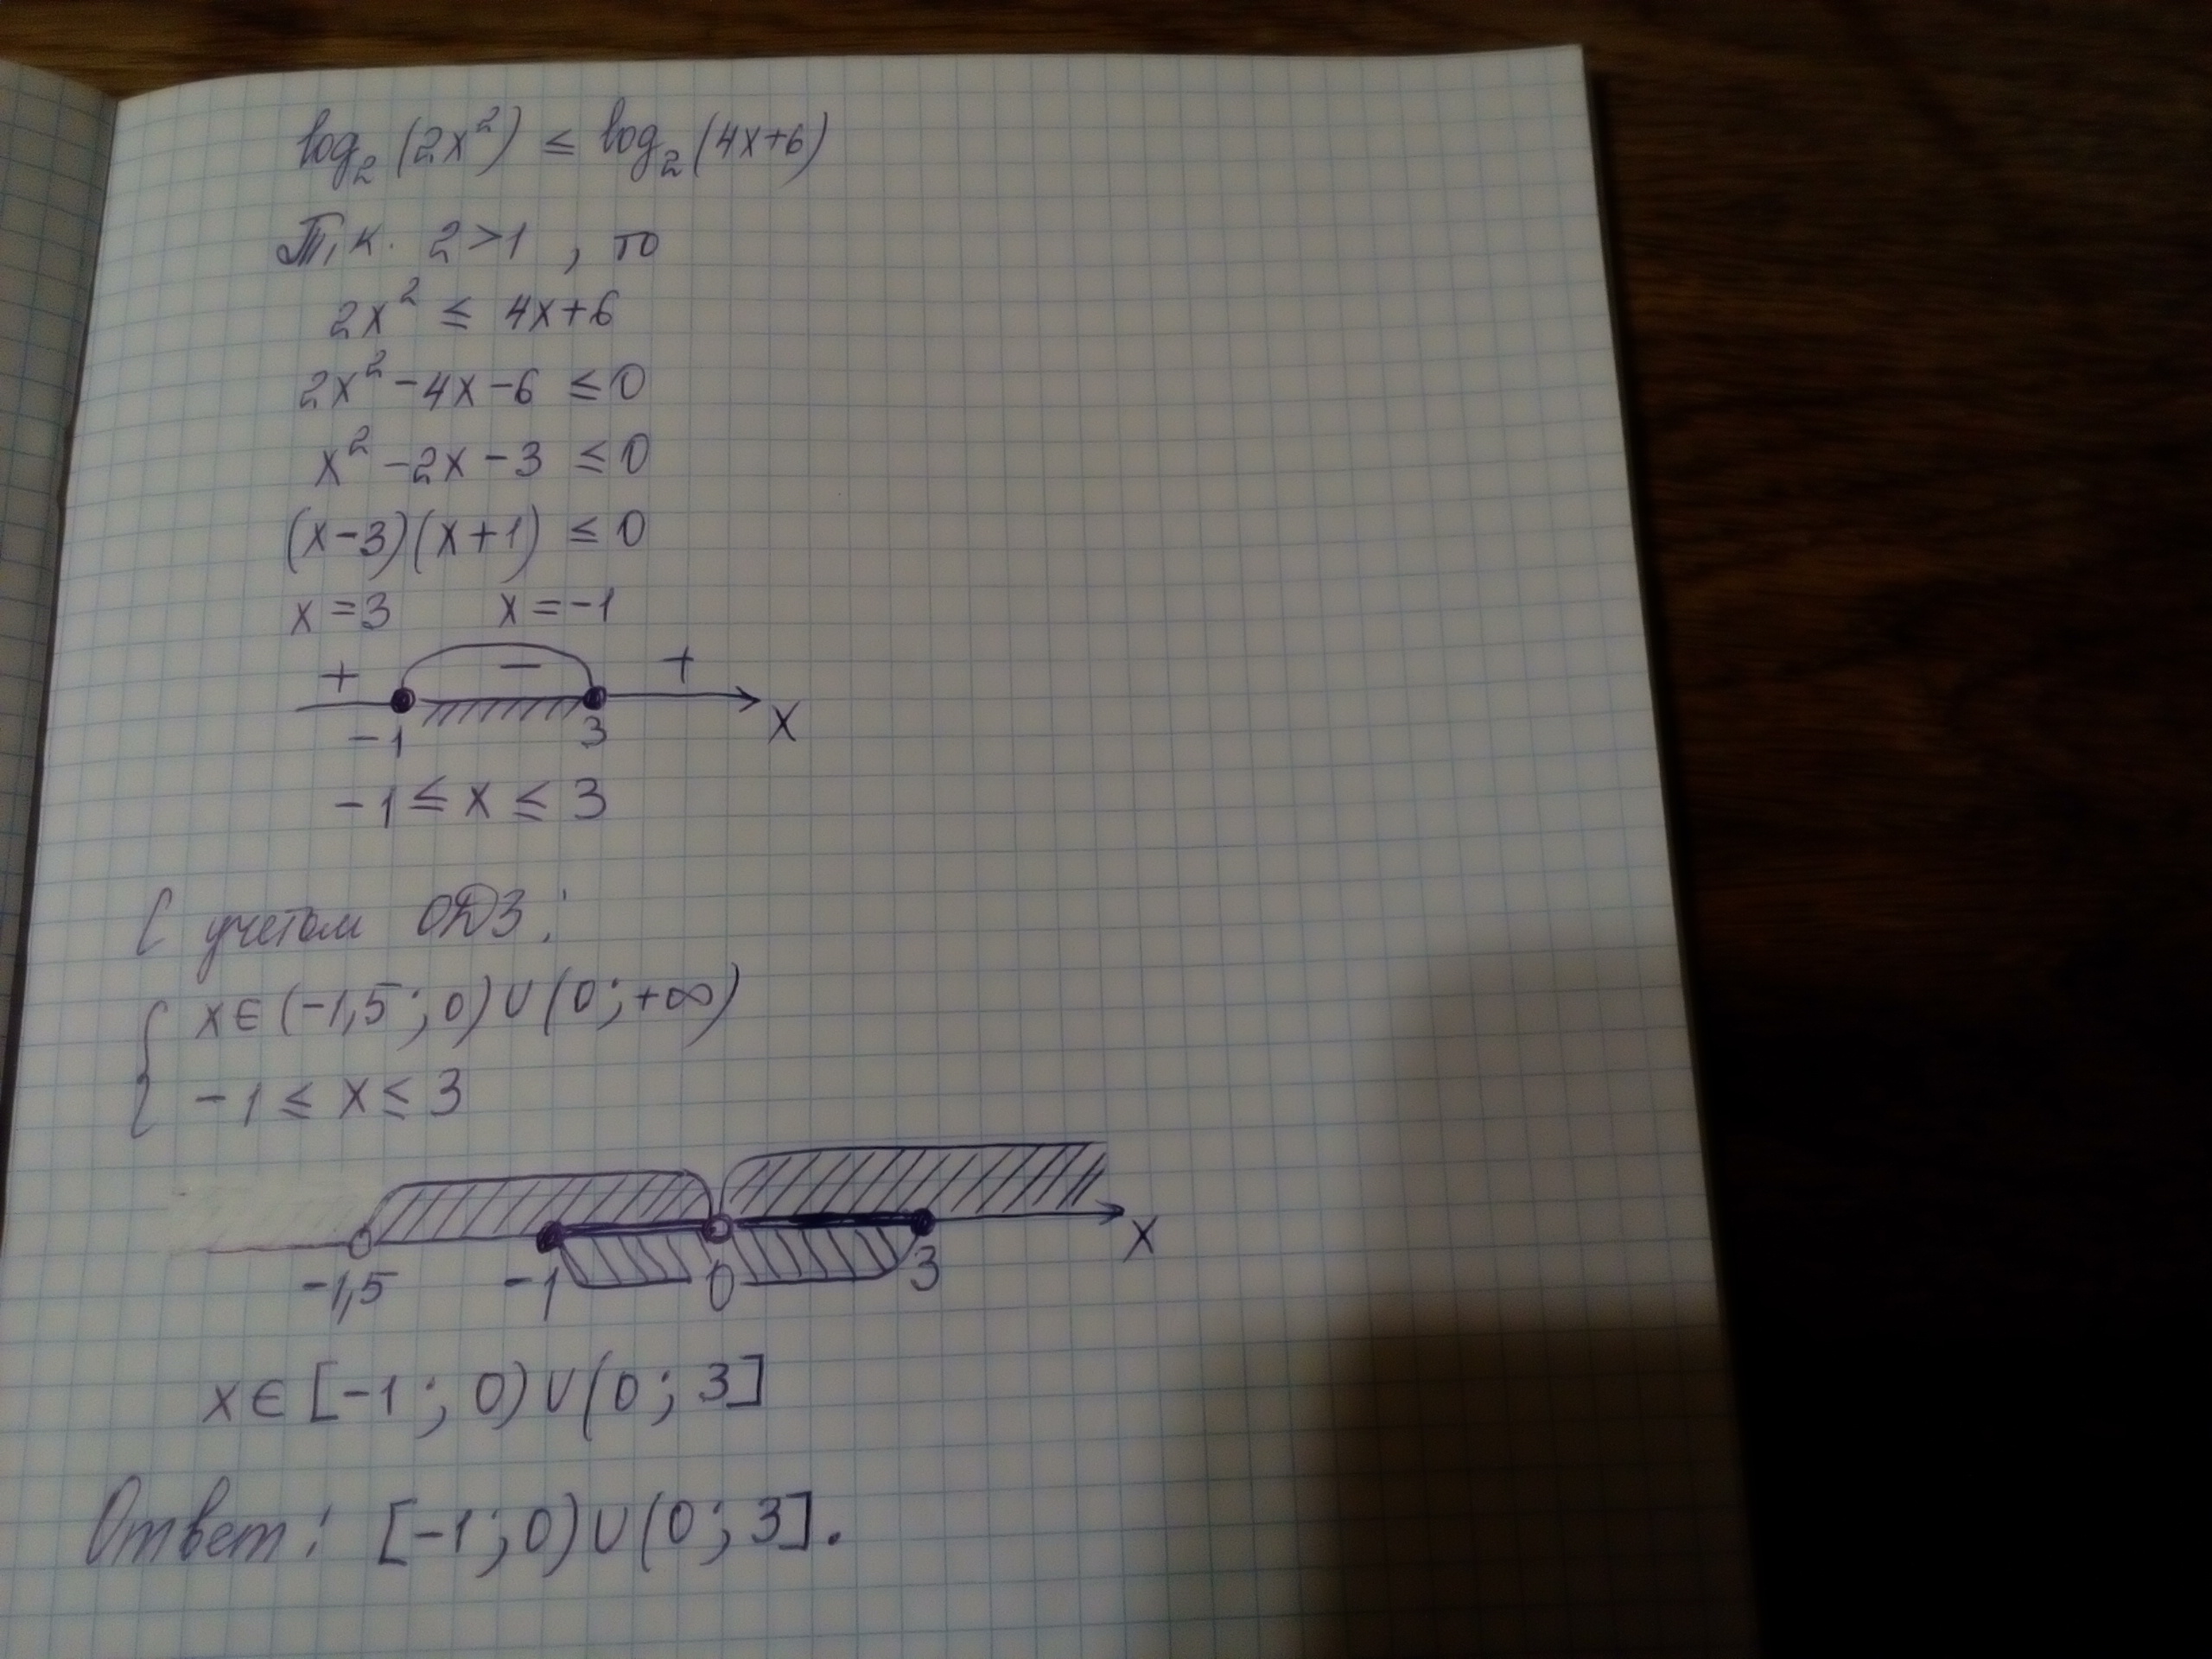 log₂(2x²) ≤ log₂(4x+6)
Т.к. 2>1, то
2x² ≤ 4x+6
2x²-4x-6 ≤0
x²-2x-3 ≤0
(x-3)(x+1) ≤0
x=3 x=-1
+ - +
-1 3 x
-1≤x≤3
С учетом ОДЗ:
{ x∈(-1,5;0)∪(0;+∞)
-1≤x≤3
-1,5 -1 0 3 x
x∈[-1;0)∪(0;3]
Ответ: [-1;0)∪(0;3].